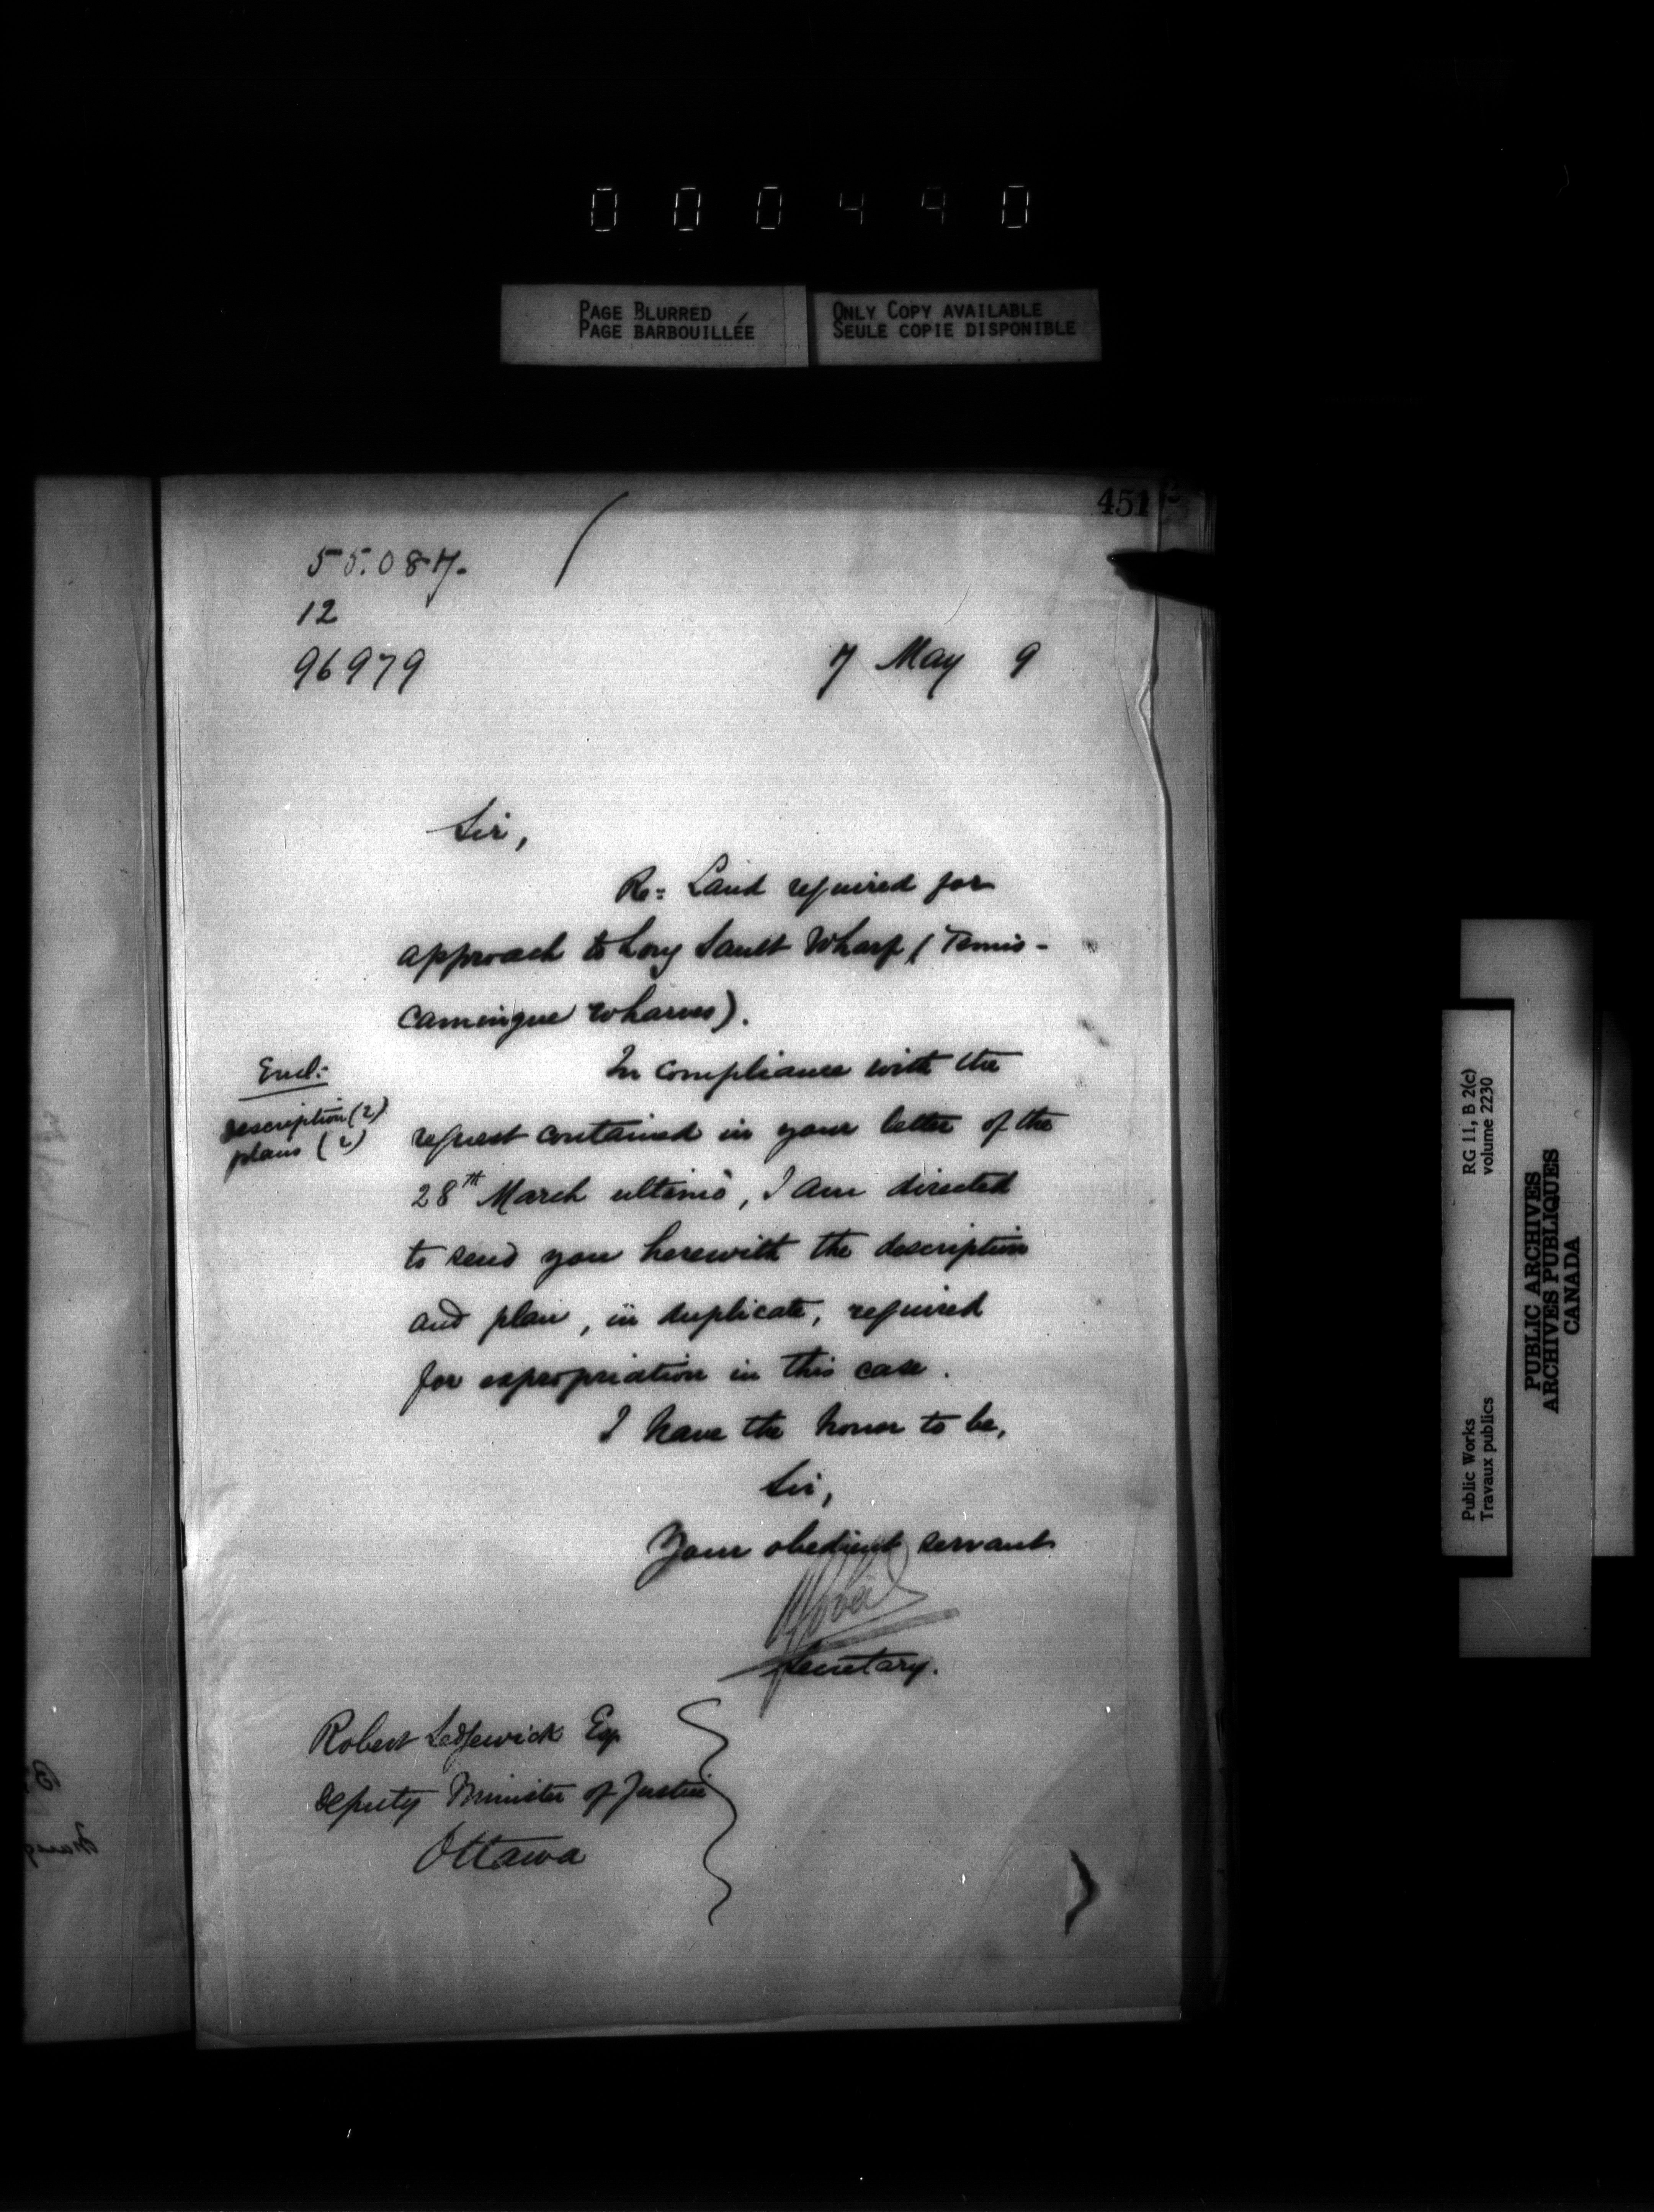 000440
PAGE BLURRED
PAGE BARBOUILLÉE
ONLY COPY AVAILABLE
SEULE COPIE DISPONIBLE
451
55.087.
12
96979
7 May 9
Sir,
Re: Land required for
approach to Long Sault Wharf (Temis-
camingue wharves).
Encl:-
description (2)
plans (2)
In compliance with the
request contained in your letter of the
28th March ultimo, I am directed
to send you herewith the description
and plan, in duplicate, required
for expropriation in this case.
I have the honor to be,
Sir,
Your obedient servant
Secretary.
Robert Sedgewick Esq
Deputy Minister of Justice
Ottawa
RG 11, B 2(c)
volume 2230
Public Works
Travaux publics
PUBLIC ARCHIVES
ARCHIVES PUBLIQUES
CANADA